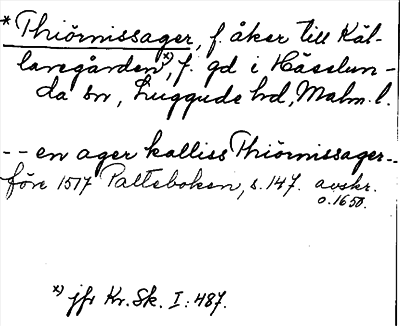 * Thiörnissager, f. åker till Käl-
laregården x), f. gd i Hässlun-
da sn, Luggude hd, Malm. l.
-- en ager kalliss Thiörnissager--
före 1517 Palteboken, s. 147. avskr.
o. 1650.
x) jfr Kr. Sk. I: 487.